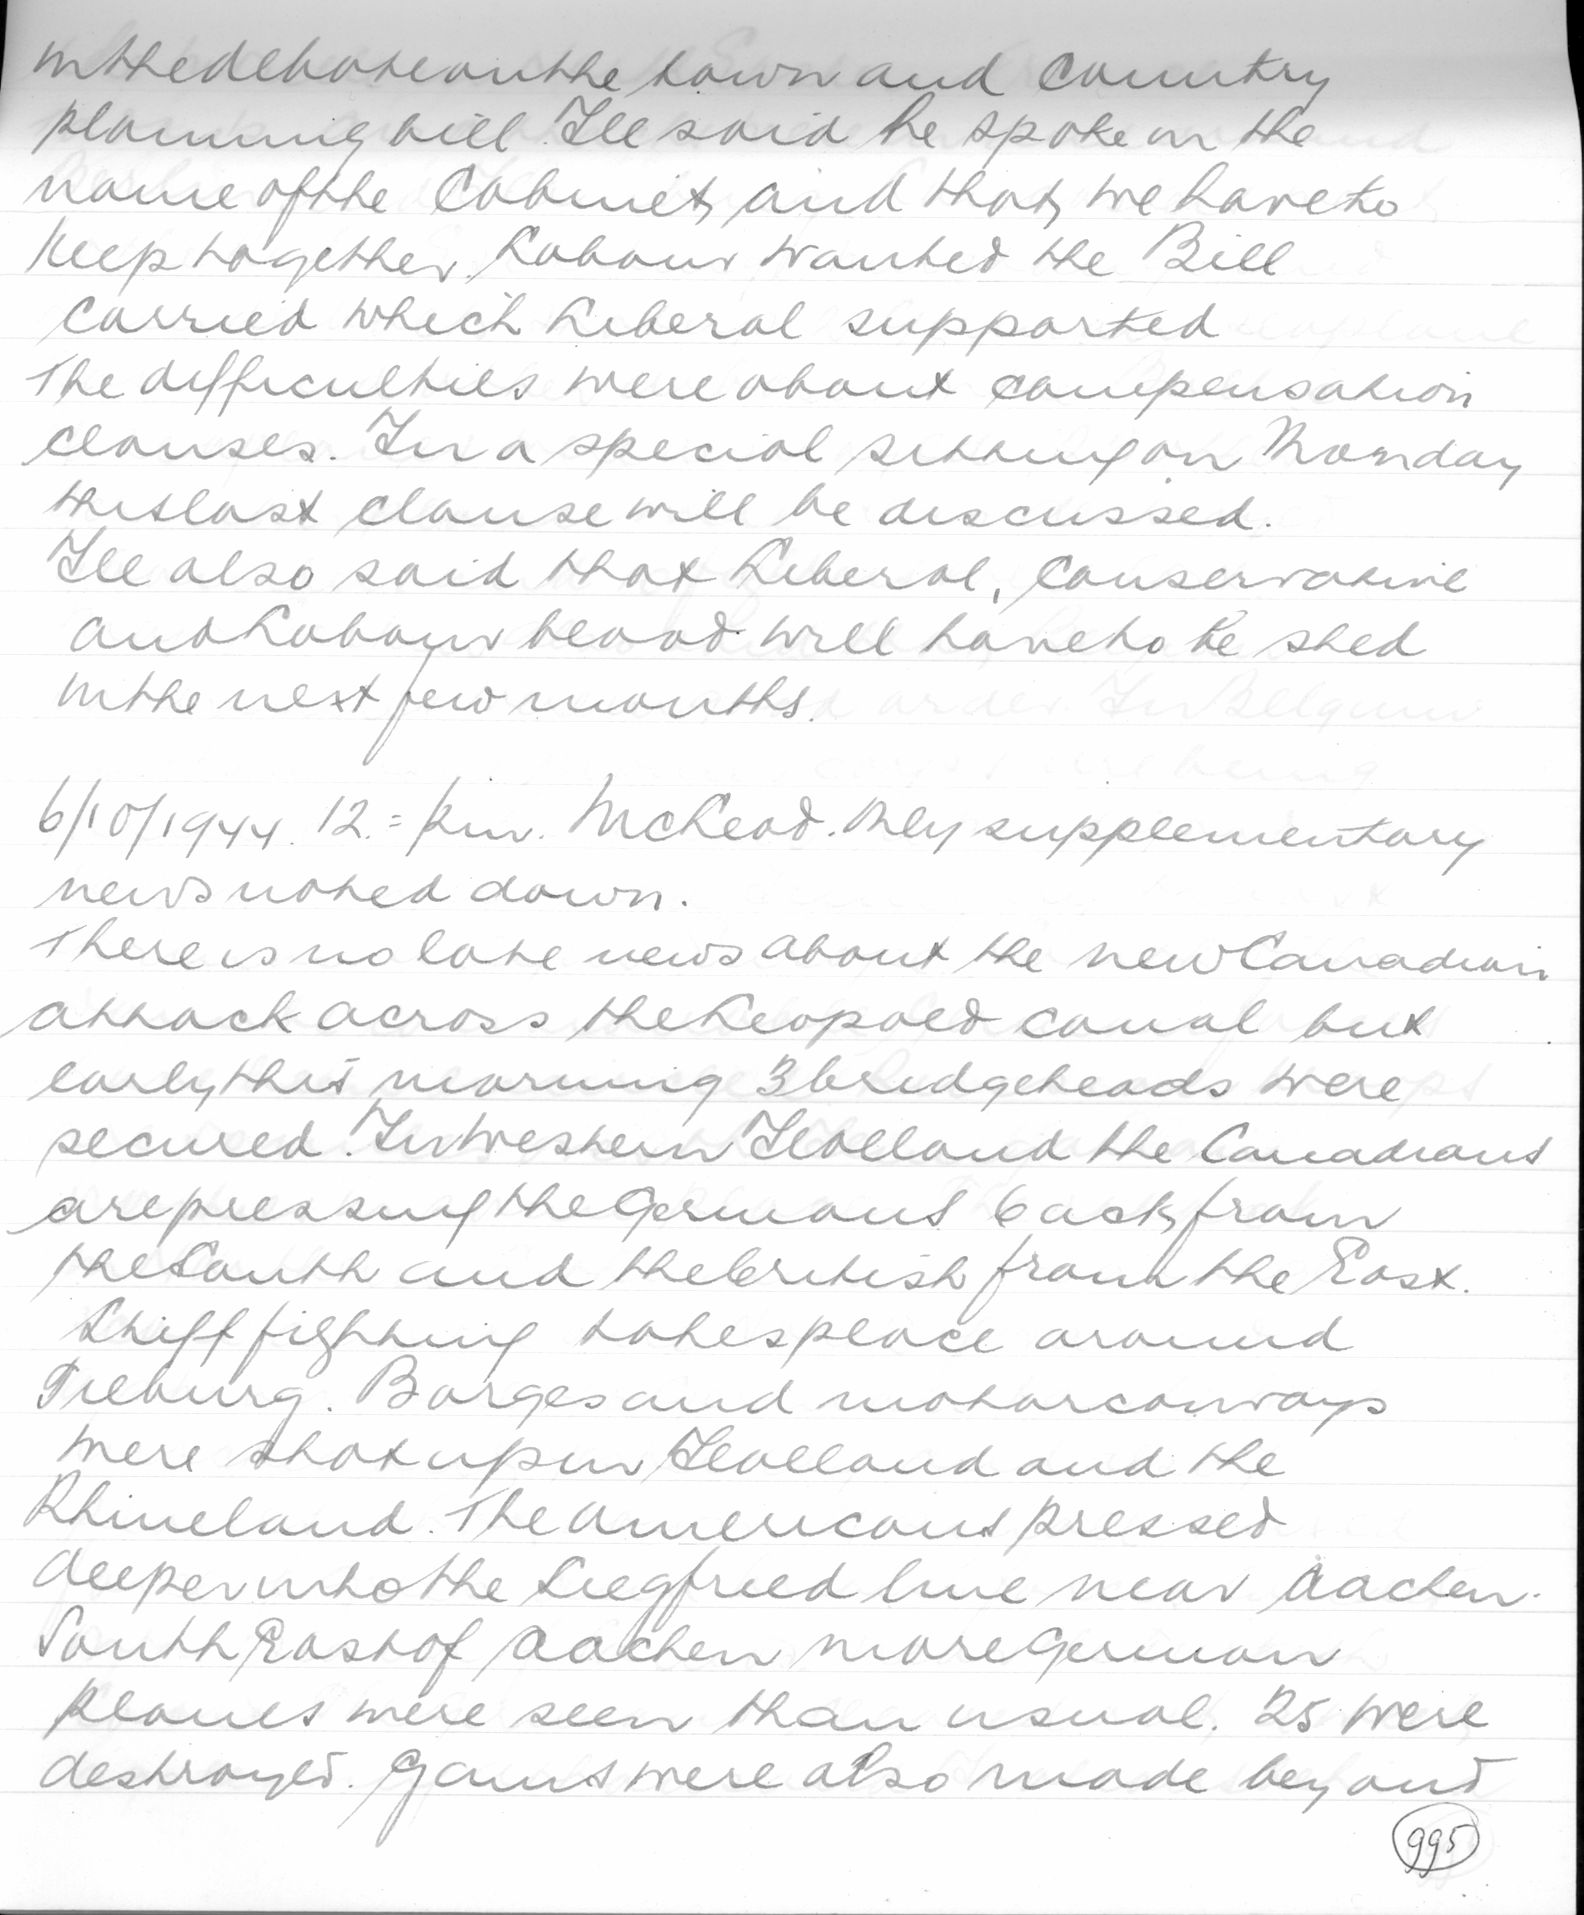 in the debate on the town and country
planning bill. He said he spoke in the
name of the Cabinet, and that, we have to
keep together. Labour wanted the Bill
carried which Liberal supported
The difficulties were about compensation
clauses. In a special sitting on Monday
this last clause will be discussed.
He also said that Liberal, Conservative
and Labour blood will have to be shed
in the next few months.
6/10/1944. 12.= pm. McLeod. Only supplementary
news noted down.
There is no late news about the new Canadian
attack across the Leopold canal but
early this morning 3 bridgeheads were
secured. In Western Holland the Canadians
are pressing the Germans back, from
the South and the British from the East.
Stiff fighting takes place around
Tilburg. Barges and motorconvoys
were shot up in Holland and the
Rhineland. The Americans pressed
deeper into the Siegfried line near Aachen.
South East of Aachen more German
planes were seen than usual. 25 were
destroyed. Gains were also made beyond
995